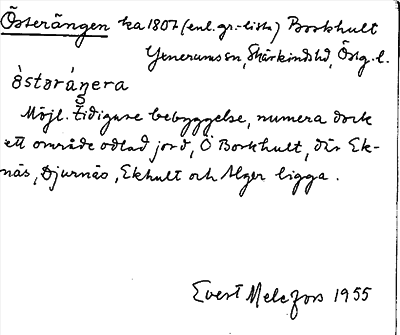 Österängen ka 1807 (enl. gr.-lista) Borkhult
Yxnerums sn, Skärkinds hd, Östg. l.
östəráŋəra
Möjl. tidigare bebyggelse, numera dock
ett område odlad jord, Ö Borkhult, där Ek-
näs, Djurnäs, Ekhult och Alger ligga.
Evert Melefors 1955